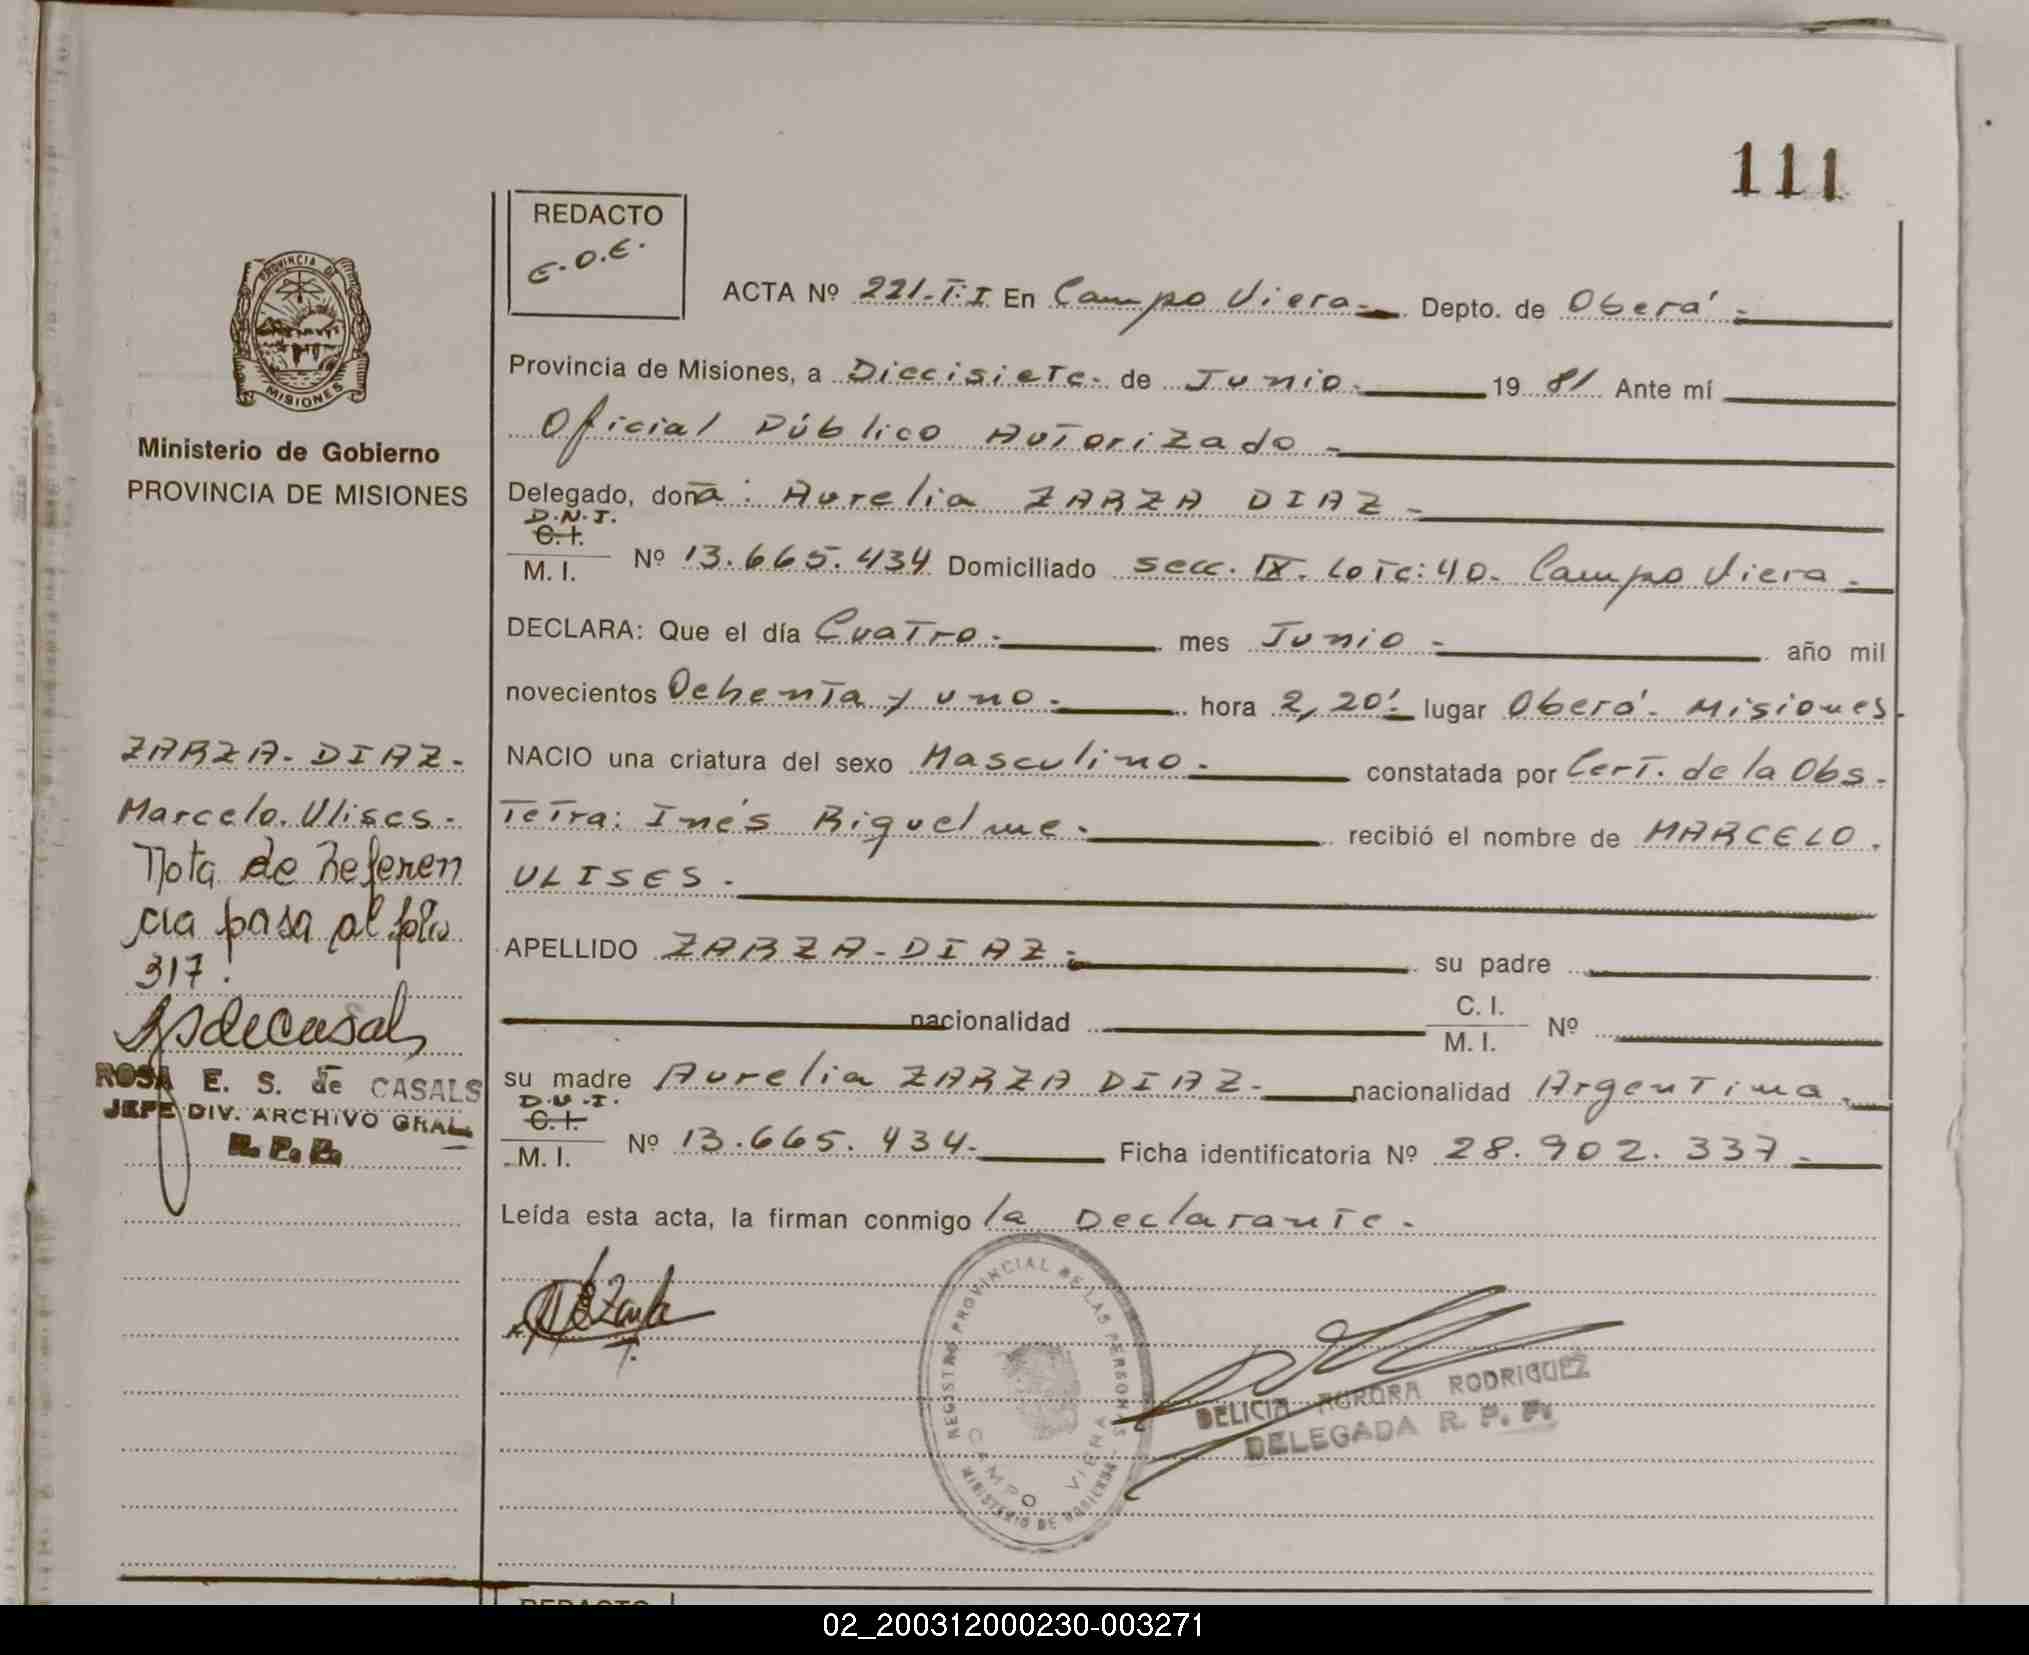 111
REDACTO
E.O.E.
ACTA Nº 221.T.I En Campo Viera.- Depto. de Oberá -
PROVINCIA DE
MISIONES
Ministerio de Gobierno
PROVINCIA DE MISIONES
Provincia de Misiones, a Diecisiete. de Junio. 19 81 Ante mí
Oficial Público Autorizado -
Delegado, doña: Aurelia ZARZA DIAZ -
D.N.I.
C.I.
M. I. Nº 13.665.434 Domiciliado secc. IX. Lote: 40. Campo Viera -
DECLARA: Que el día Cuatro.- mes Junio - año mil
novecientos Ochenta y uno.- hora 2,20'- lugar Oberá - Misiones.
NACIO una criatura del sexo Masculino.- constatada por Cert. de la Obs-
tetra: Inés Riquelme.- recibió el nombre de MARCELO.
ULISES.-
APELLIDO ZARZA-DIAZ.- su padre
nacionalidad C. I.
M. I. Nº
su madre Aurelia ZARZA DIAZ.- nacionalidad Argentina.-
D.N.I.
C.I.
M. I. Nº 13.665.434.- Ficha identificatoria Nº 28.902.337.-
Leída esta acta, la firman conmigo la Declarante.-
ZARZA-DIAZ.
Marcelo. Ulises.
Nota de Referen
cia pasa al folio
317.
ROSA E. S. de CASALS
JEFE DIV. ARCHIVO GRAL.
R. P. P.
REGISTRO PROVINCIAL DE LAS PERSONAS
CAMPO VIERA
MINISTERIO DE GOBIERNO
DELICIA AURORA RODRIGUEZ
DELEGADA R. P. P.
REDACTO
02_200312000230-003271